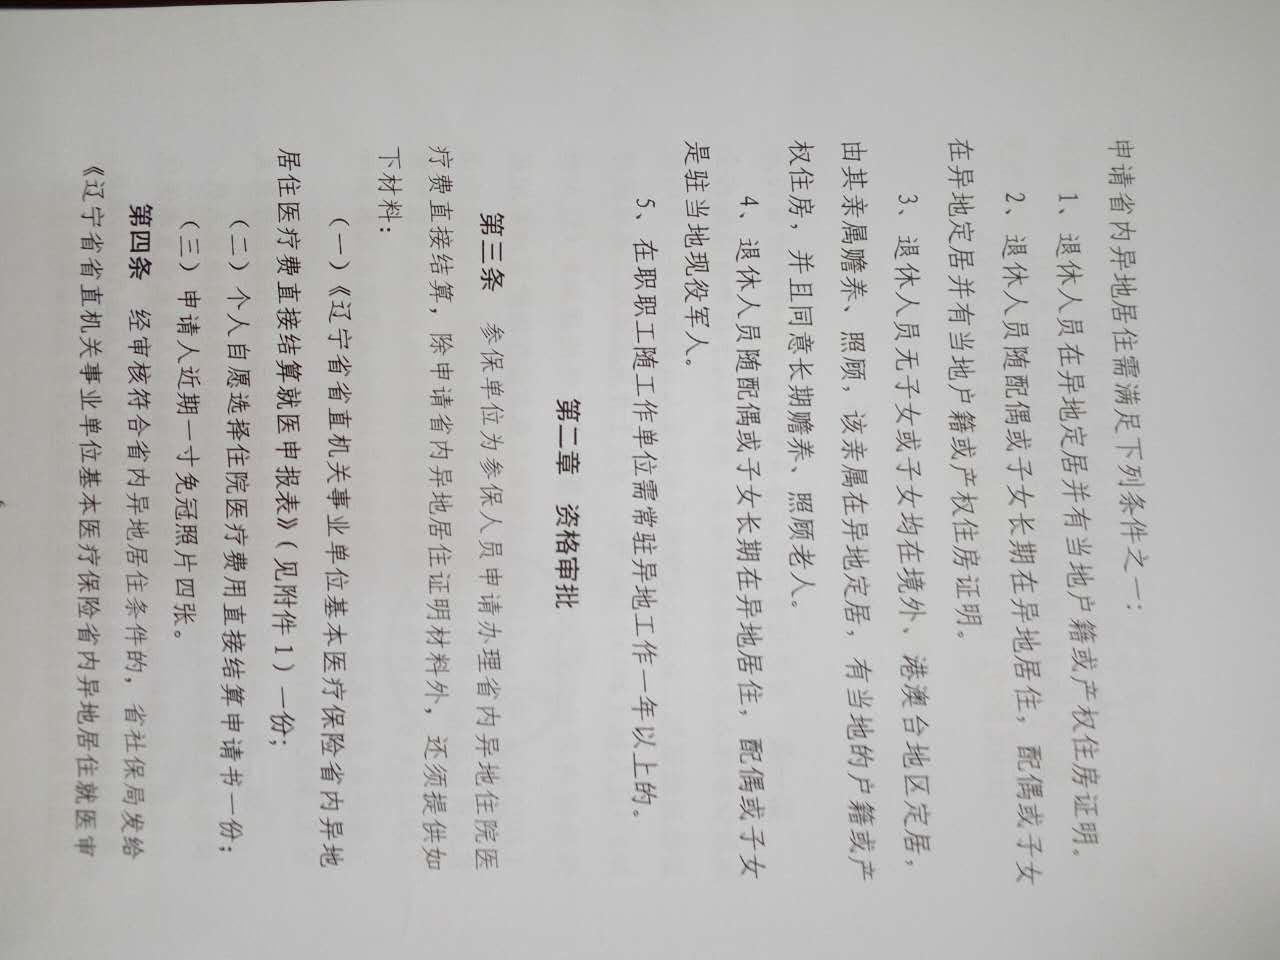 申请省内异地居住需满足下列条件之一：
1、退休人员在异地定居并有当地户籍或产权住房证明。
2、退休人员随配偶或子女长期在异地居住，配偶或子女
在异地定居并有当地户籍或产权住房证明。
3、退休人员无子女或子女均在境外、港澳台地区定居，
由其亲属赡养、照顾，该亲属在异地定居，有当地的户籍或产
权住房，并且同意长期赡养、照顾老人。
4、退休人员随配偶或子女长期在异地居住，配偶或子女
是驻当地现役军人。
5、在职职工随工作单位需常驻异地工作一年以上的。
第二章 资格审批
第三条 参保单位为参保人员申请办理省内异地住院医
疗费直接结算，除申请省内异地居住证明材料外，还须提供如
下材料：
（一）《辽宁省省直机关事业单位基本医疗保险省内异地
居住医疗费直接结算就医申报表》（见附件1）一份；
（二）个人自愿选择住院医疗费用直接结算申请书一份；
（三）申请人近期一寸免冠照片四张。
第四条 经审核符合省内异地居住条件的，省社保局发给
《辽宁省省直机关事业单位基本医疗保险省内异地居住就医审